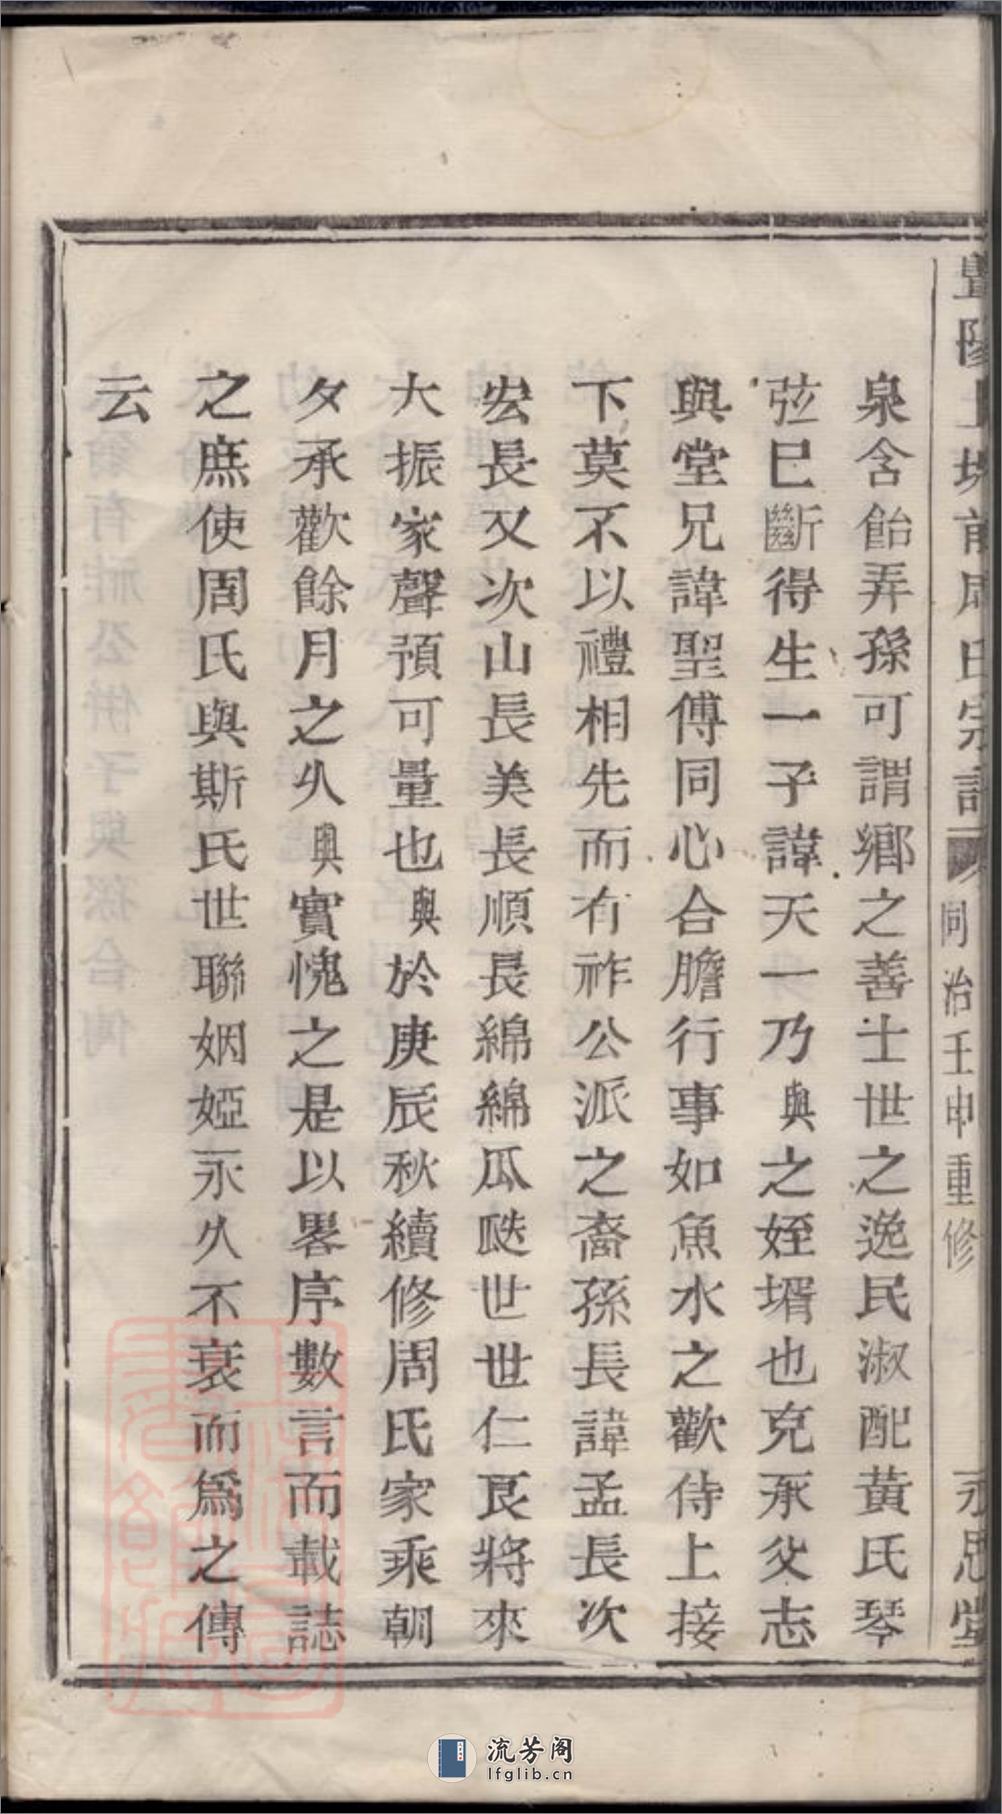 泉含飴弄孫可謂鄉之善士世之逸民淑配黃氏琴
弦巳斷得生一子諱天一乃與之姪壻也克承父志
與堂兄諱聖傅同心合膽行事如魚水之歡侍上接
下莫不以禮相先而有祚公派之裔孫長諱孟長次
宏長又次山長長美長順長綿綿瓜瓞世世仁良將來
大振家聲預可量也與於庚辰秋續修周氏家乘朝
夕承歡餘月之久與實愧之是以畧序數言而載誌
之庶使周氏與斯氏世聯姻婭永久不衰而爲之傳
云
周氏宗譜
同治壬申重修
永思堂
流芳阁
lfglib.cn